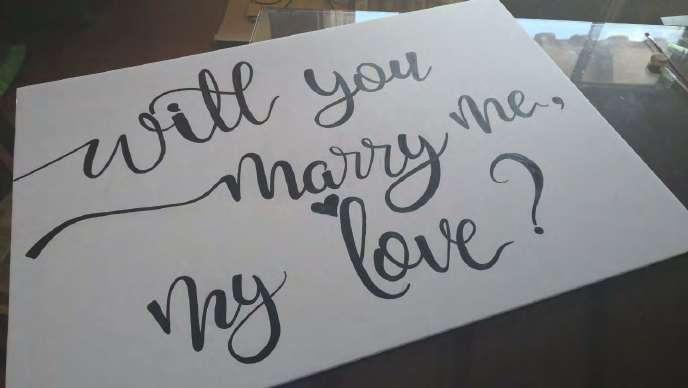 will you
marry me,
my love?